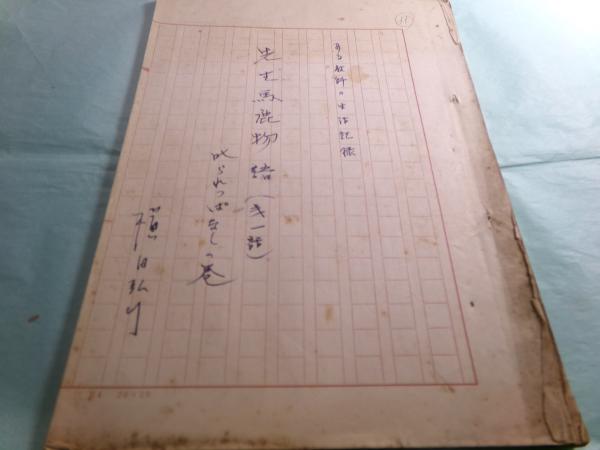 11
ある教師の生活記録
先生馬鹿物語(第一話)
叱られっぱなしの巻
20×20